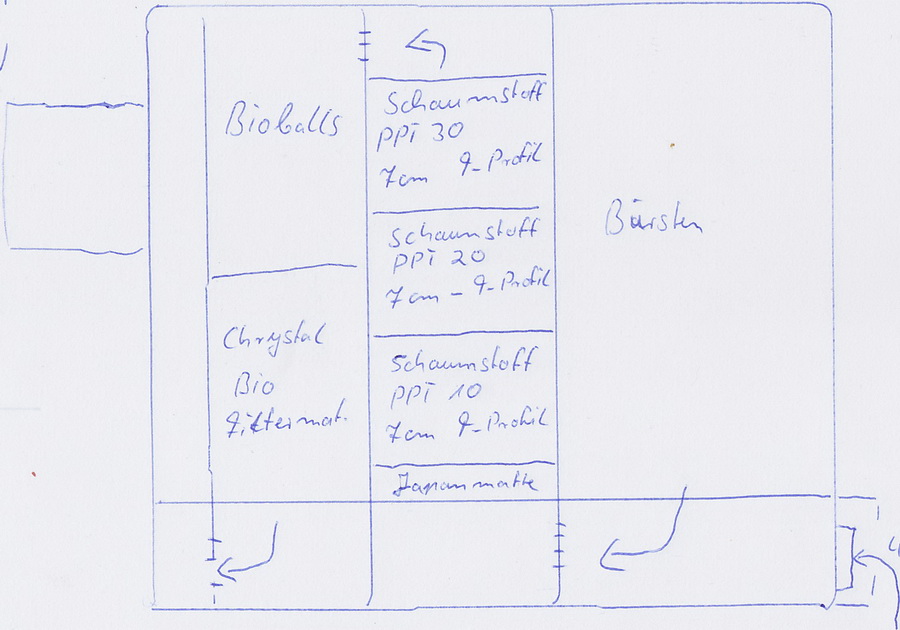 Bioballs
Chrystal
Bio
Filtermat.
Schaumstoff
PPI 30
7cm F-Profil
Schaumstoff
PPI 20
7cm - F-Profil
Schaumstoff
PPI 10
7cm F-Profil
Japanmatte
Bürsten